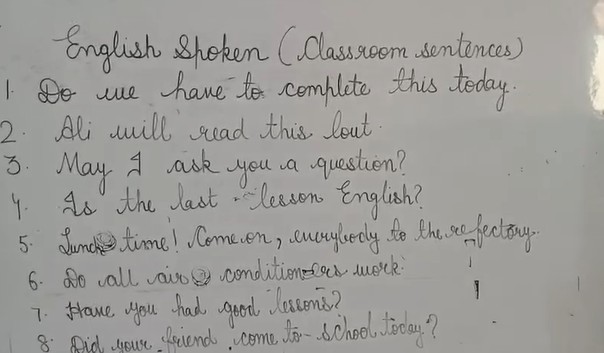 English Spoken (Classroom sentences)
1. Do we have to complete this today.
2. Ali will read this lout.
3. May I ask you a question?
4. Is the last lesson English?
5. Lunch time! Come on, everybody to the refectory.
6. Do all air conditioners work.
7. Have you had good lessons?
8. Did your friend come to school today?